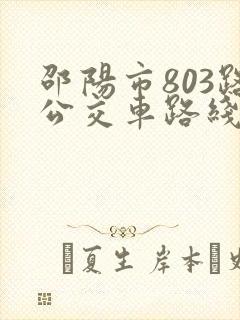 邵陽市803路
公交車路綫
夏生 岸本